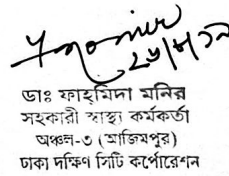 ২৬/৮/১৯
ডাঃ ফাহ্‌মিদা মনির
সহকারী স্বাস্থ্য কর্মকর্তা
অঞ্চল-৩ (আজিমপুর)
ঢাকা দক্ষিণ সিটি কর্পোরেশন